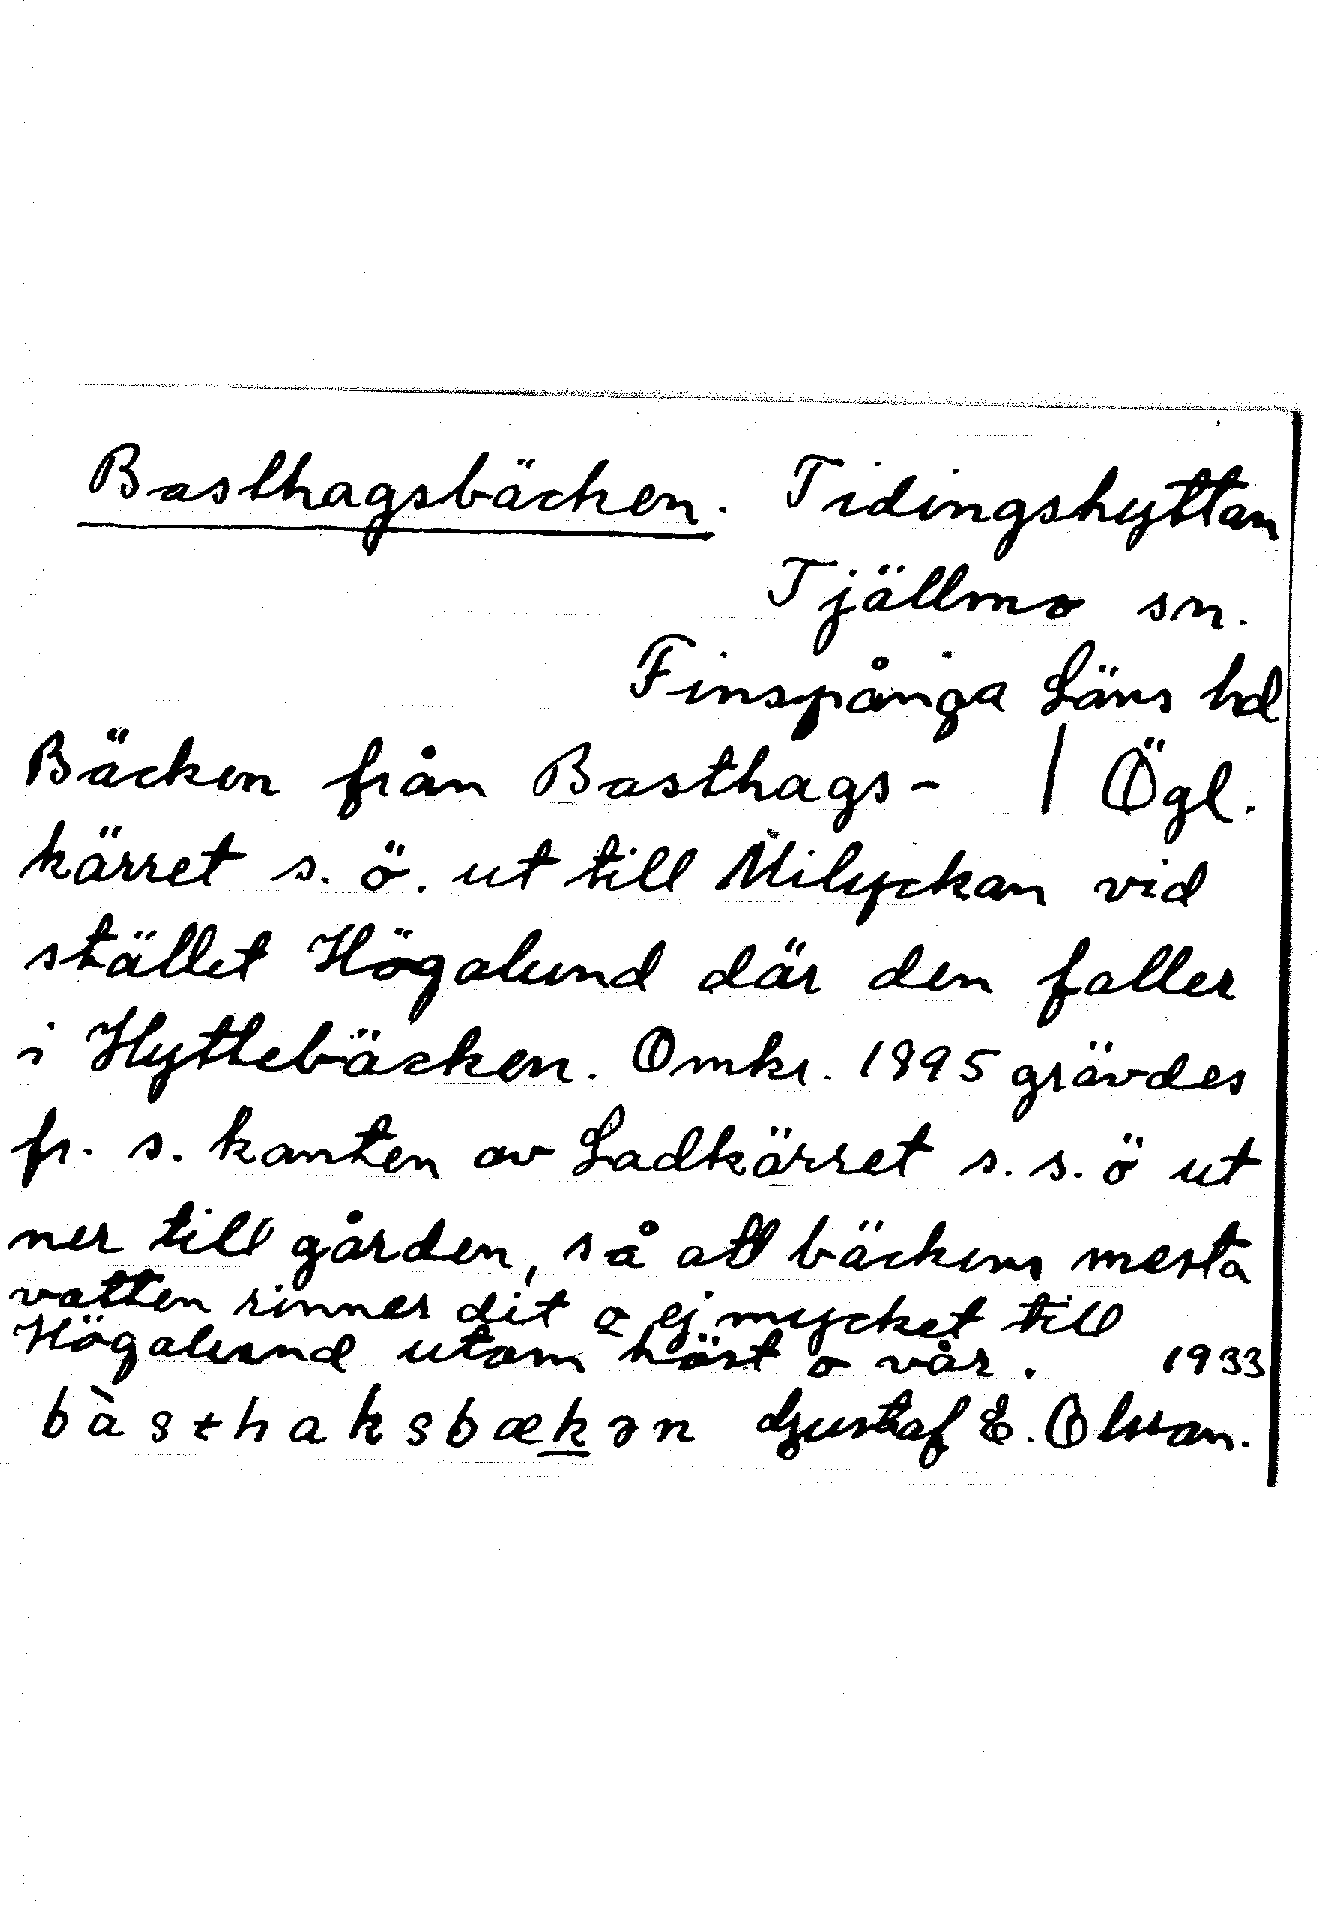 Basthagsbäcken. Tidingshyttan
Tjällmo sn.
Finspånga Läns hd
Bäcken från Basthags- | Ögl.
kärret s. ö. ut till Milyckan vid
stället Högalund där den faller
i Hyttebäcken. Omkr. 1895 grävdes
fr. s. kanten av Ladkärret s. s. ö ut
ner till gården, så att bäckens mesta
vatten rinner dit o ej mycket till
Högalund utom höst o vår. 1933
bàsthaksbækən Gustaf E. Olsson.